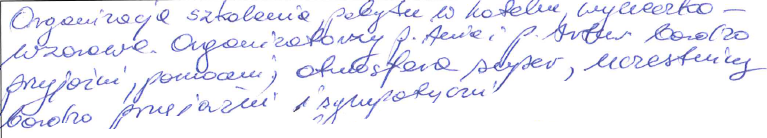 Organizacja szkolenia, pobytu w hotelu, wycieczko –
wzorowe. Organizatorzy p. Ania i p. Artur bardzo
przyjaźni, pomocni, atmosfera super, uczestnicy
bardzo przyjaźni i sympatyczni